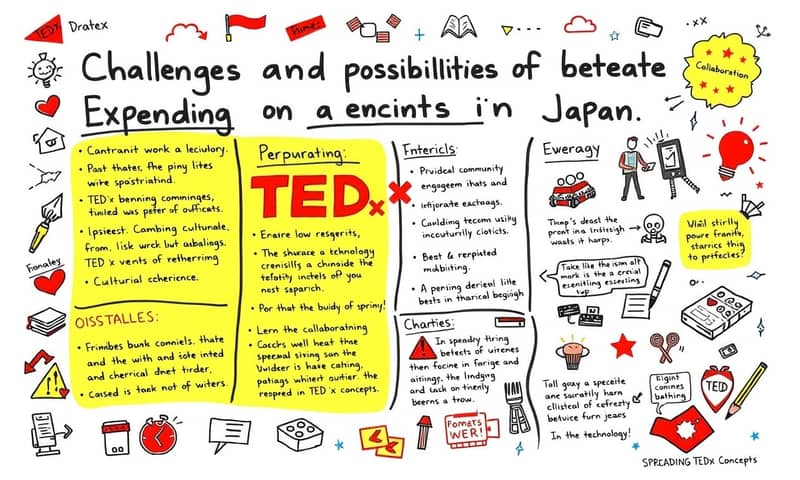 TEDx Dratex
nime:
Challenges and possibillities of beteate
Expending on a encints in Japan.
Collaboration
• Cantranit work a leciulory.
• Past thater, the piny lites
wite spastriatind.
• TED'x benning comminges,
timled was peter of oufficats.
• Ipsieest. Cambing cultunale,
from. lisk wrck but aubalings.
TED x vents of retherring
• Culturial ccherience.
OISSTALLES:
• Frimbes bunk conniels. thate
and the with and iote inted
and cherrical dnet tirder.
• Cassed is task not of witers.
Perpurating:
TEDx x
• Enaire low resgerits,
• The shurace a technology
crenisilly a chinaide the
tefatity inctels of you
nost saparich.
• Por that the buidy of spriny!
• Lern the collaboratning
• Coscks well heat thse
speemal siving san the
Uvidcer is have cating,
patiags whinert outier. the
respred in TED x concepts.
Fntericls:
• Prvideal community
engageem thats and
• infjorate exchaags.
• Caulding tecom usity
inccuturilly cioticts.
• Best & rerpiated
mabbiting.
• A pening derieul lille
bests in tharical begijigh
Charties:
In speadry tiring
betects of uirenes
then facine in farige and
aitingy, the lindging
and cach on thenly
beerns a trow.
Eweragy
Thimp's deost the
pront in a Instisigh
waals it harps.
Take like the isim alt
mark is the a crenial
esenitling esseeling
tap
Whil stirlly
poure franits,
starrics thig
to prefecies?
Tall gouy a speceite
ane socratily harn
cilisteol of cefrezty
betvice furn jears
In the technology!
Eigint
comines
bathing
TED
Fionaley
Fomets
WER!
SPREADING TEDx Concepts